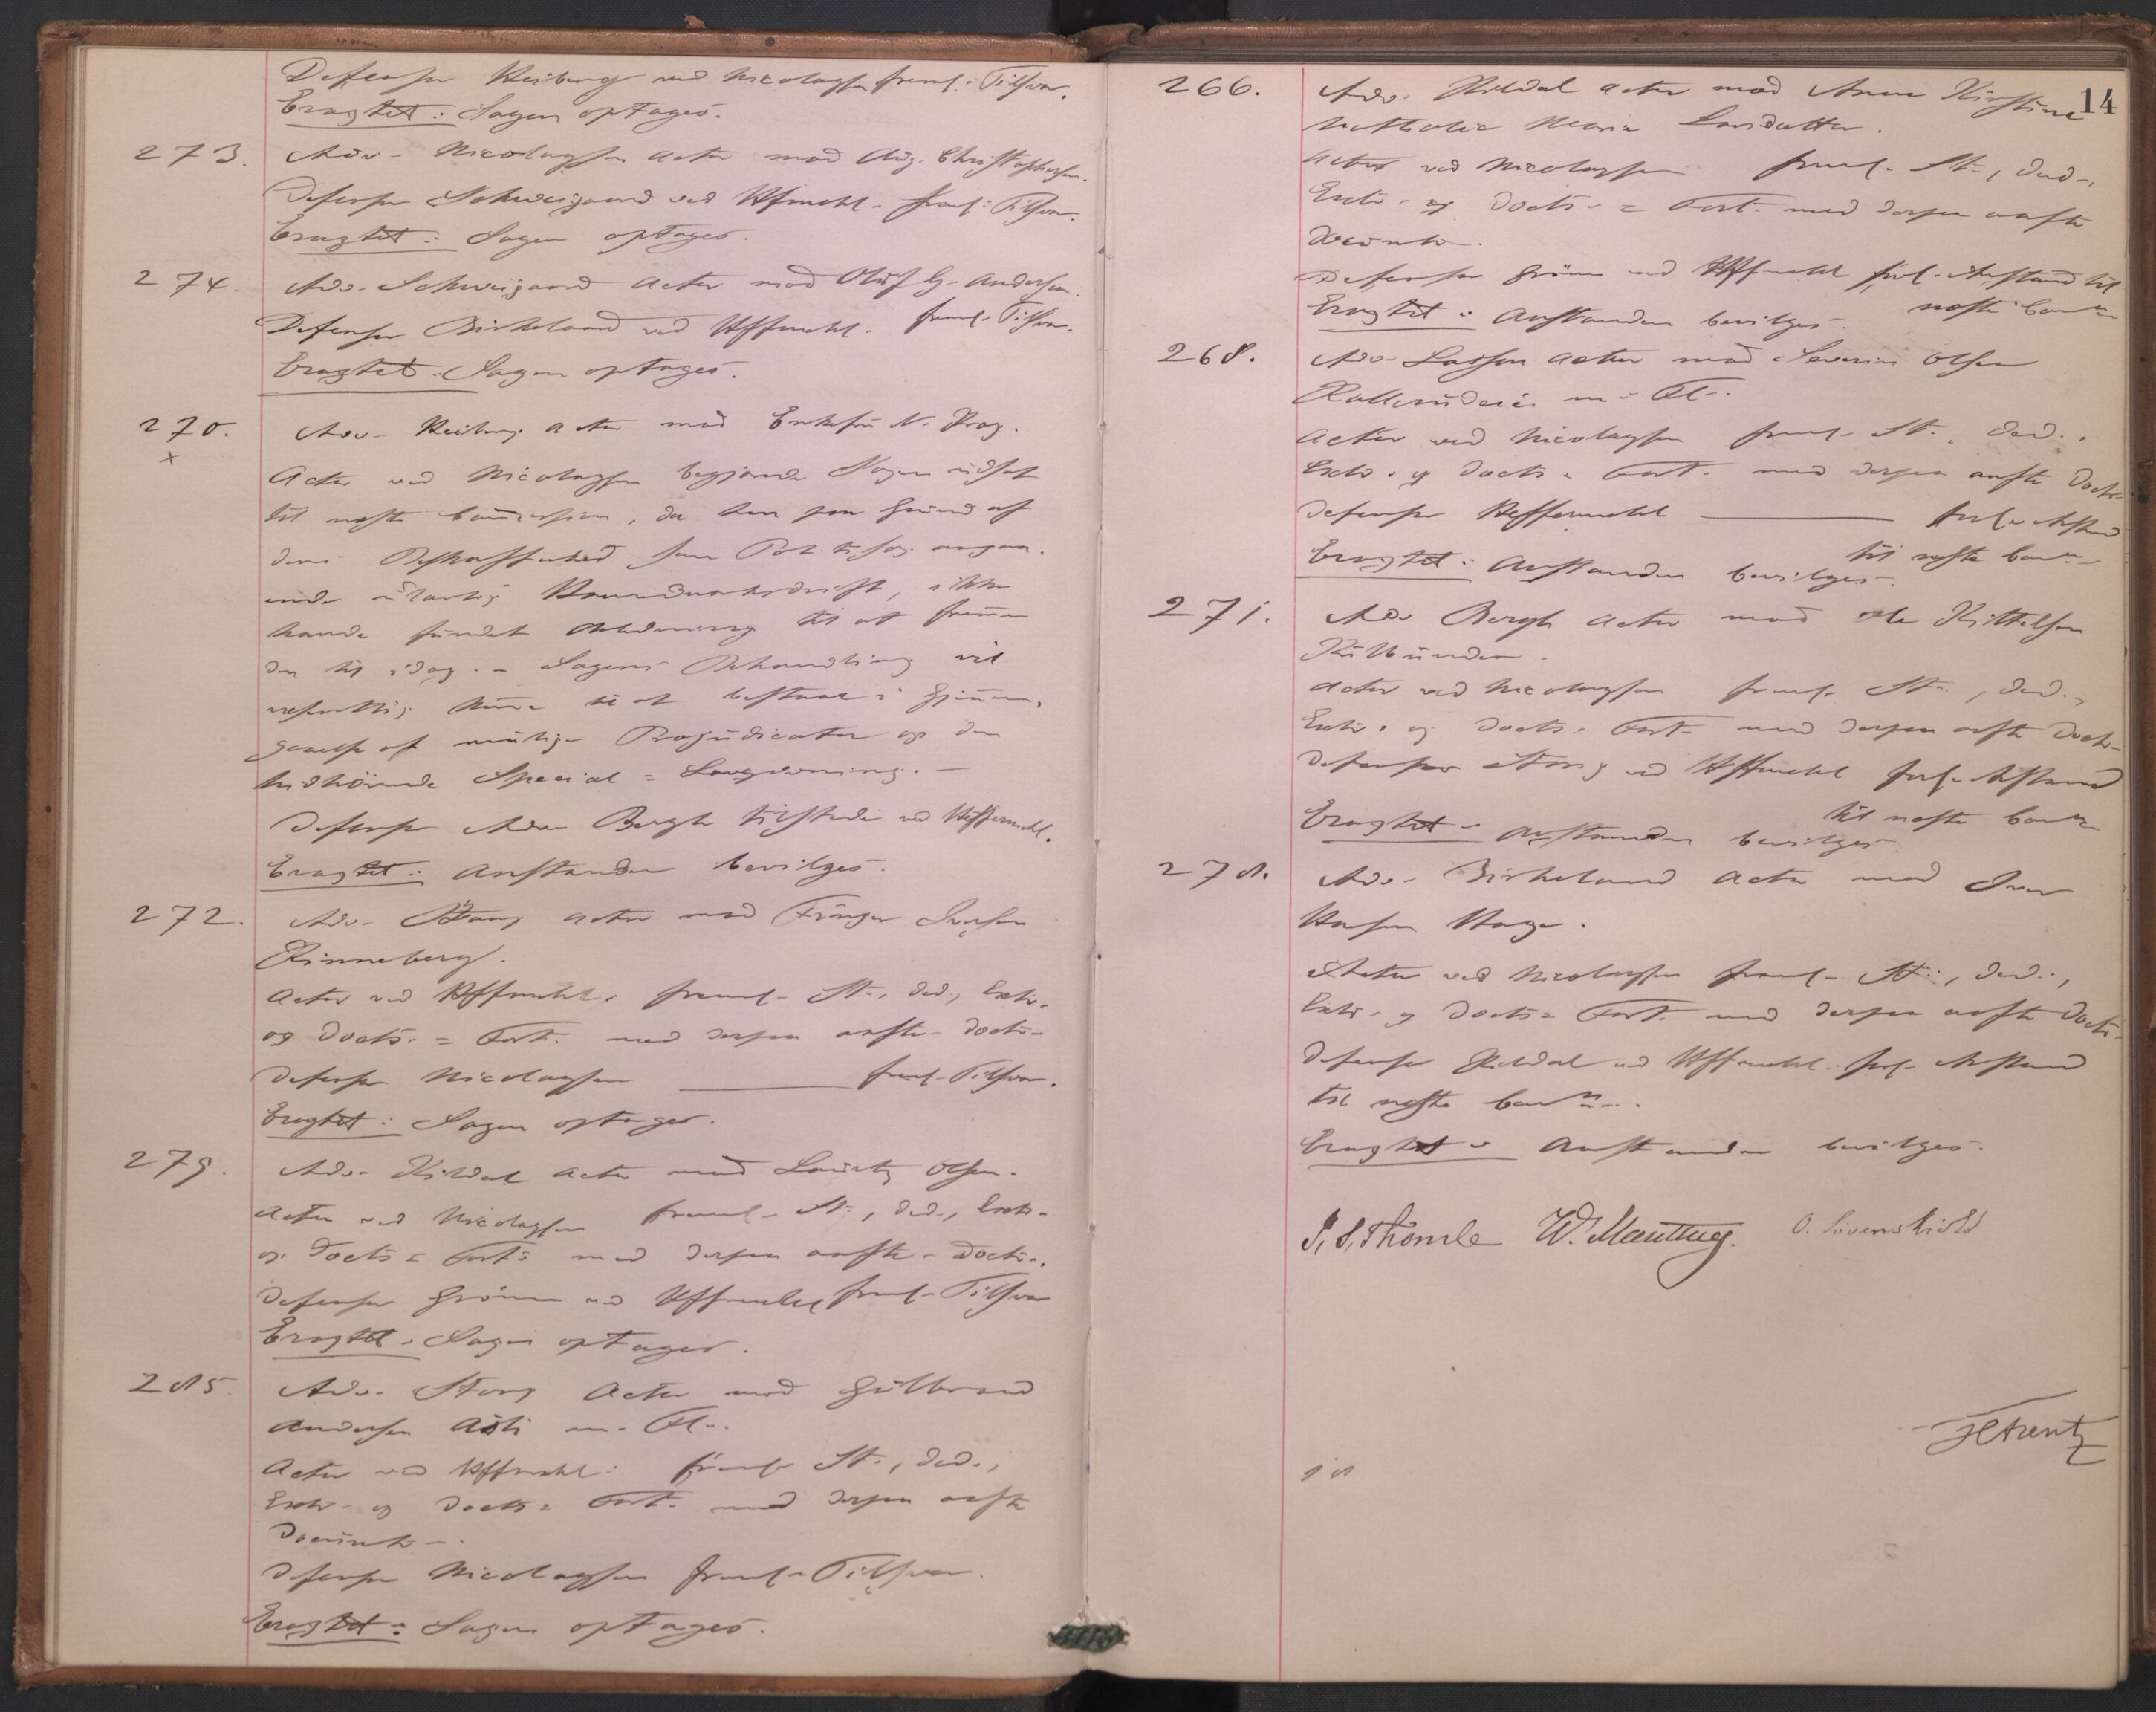 Defensor Heiberg ved Nicolaysen freml. Tilsvar.
Eragtet: Sagen optages.
273. Adv. Nicolaysen Actor mod Aug. Christophersen.
Defensor Schweigaard ved Heffermehl. freml. Tilsvar.
Eragtet: Sagen optages.
274. Adv. Schweigaard Actor mod Oluf G. Andersen.
Defensor Birkeland ved Heffermehl. freml. Tilsvar.
Eragtet: Sagen optages.
270. Adv. Heiberg Actor mod Enkefru N. Krag.
x
Actor ved Nicolaysen begjærede Sagen udsat
til næste, da han paa Grund af
dens Beskaffenhed som Politisag angaa-
ende ulovlig Haandværksdrift, ikke
havde fundet Anledning til at fremme
den til idag. - Sagens Behandling vil
væsentlig komme til at bestaae i Gjennem-
gaaelse af mulige Præjudicater og den
hidhørende Special-Lovgivning. -
Defensor Adv. Bergh tilstede ved Heffermehl.
Eragtet: Anstanden bevilges.
272. Adv. Stang Actor mod Iversen
Rinneberg.
Actor ved Heffermehl. freml. St., Ded., Extr.
og Doctr. = Cert. med derpaa anførte Doctr.
Defensor Nicolaysen ——— freml. Tilsvar.
Eragtet: Sagen optages.
279. Adv. Kildal Actor mod Lauritz Olsen.
Actor ved Nicolaysen freml. St., Ded., Extr.
og Docts = Cert. med derpaa anførte Doctr.
Defensor Grønn ved Heffermehl freml. Tilsvar
Eragtet. Sagen optages.
285. Adv. Stang Actor mod Gulbrand
Andersen m. Fl.
Actor ved Heffermehl. freml. St., Ded.,
Extr. og Docts = Cert. med derpaa anførte
Defensor Nicolaysen freml. Tilsvar.
Eragtet: Sagen optages.
14
266. Adv. Kildal Actor mod Anne Kirstine
Nathalie Marie Larsdatter.
Actor ved Nicolaysen freml. St., Ded.,
Extr. og Docts = Cert. med derpaa anførte
Defensor Grønn ved Heffermehl forl. Anstand til
næste
Eragtet: Anstanden bevilges.
268. Adv. Lasson Actor mod Severin Olsen
m. Fl.
Actor ved Nicolaysen freml. St., Ded.,
Extr. og Docts = Cert. med derpaa anførte Doctr.
Defensor Heffermehl ——— forl. Anstand
til næste
Eragtet: Anstanden bevilges.
271. Adv. Bergh Actor mod Ole Kittelsen
Actor ved Nicolaysen freml. St., Ded.,
Extr. og Docts. Cert. med derpaa anførte Doctr.
Defensor Stang ved Heffermehl forl. Anstand
til næste
Eragtet: Anstanden bevilges.
278. Adv. Birkeland Actor mod Iver
Hansen Hage.
Actor ved Nicolaysen freml. St., Ded.,
Extr. og Docts = Cert. med derpaa anførte Doctr.
Defensor Kildal ved Heffermehl. forl. Anstand
til næste
Eragtet: Anstanden bevilges.
I. S. Thomle W. Manthey. O. Løvenskiold